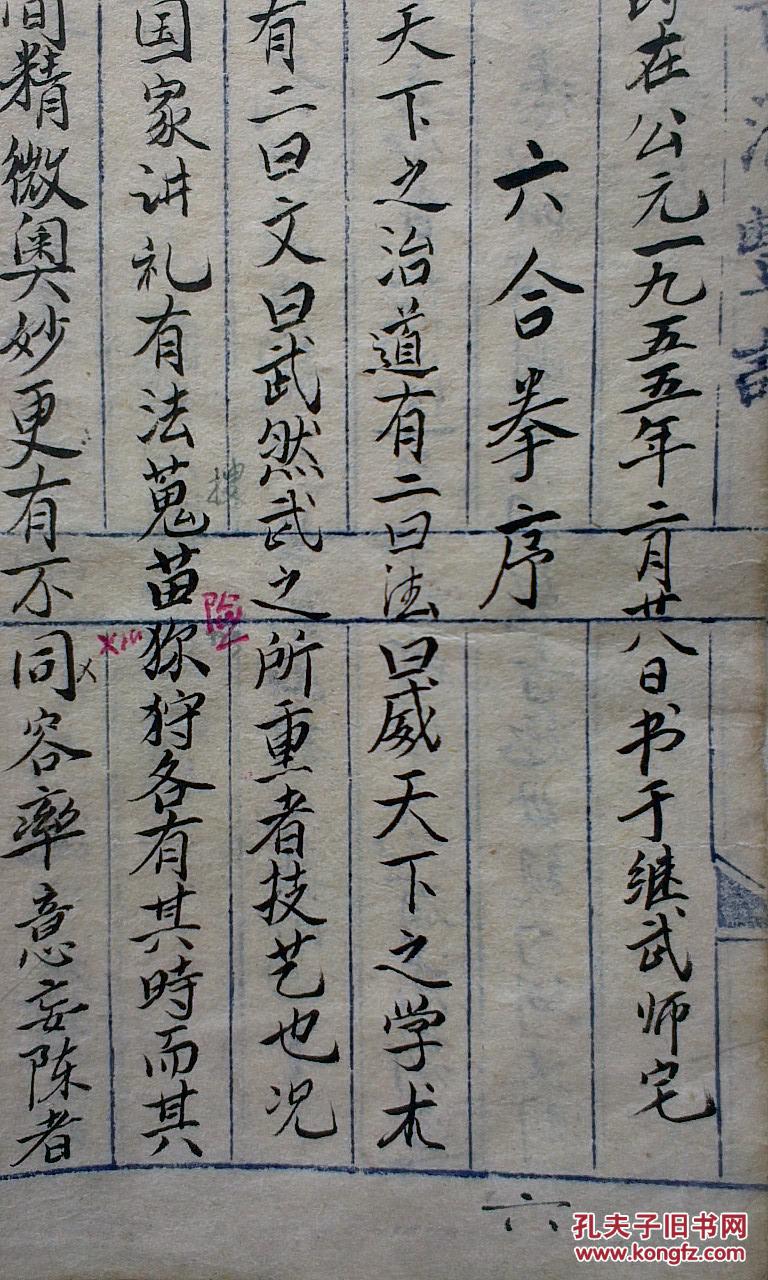 时在公元一九五五年二月廿八日书于继武师宅
六合拳序
天下之治道有二曰法曰威天下之学术
有二曰文曰武然武之所重者技艺也况
国家讲礼有法蒐苗狝狩各有其時而其
间精微奥妙更有不同容率意妄陈者
搜
险
六
孔夫子旧书网
www.kongfz.com